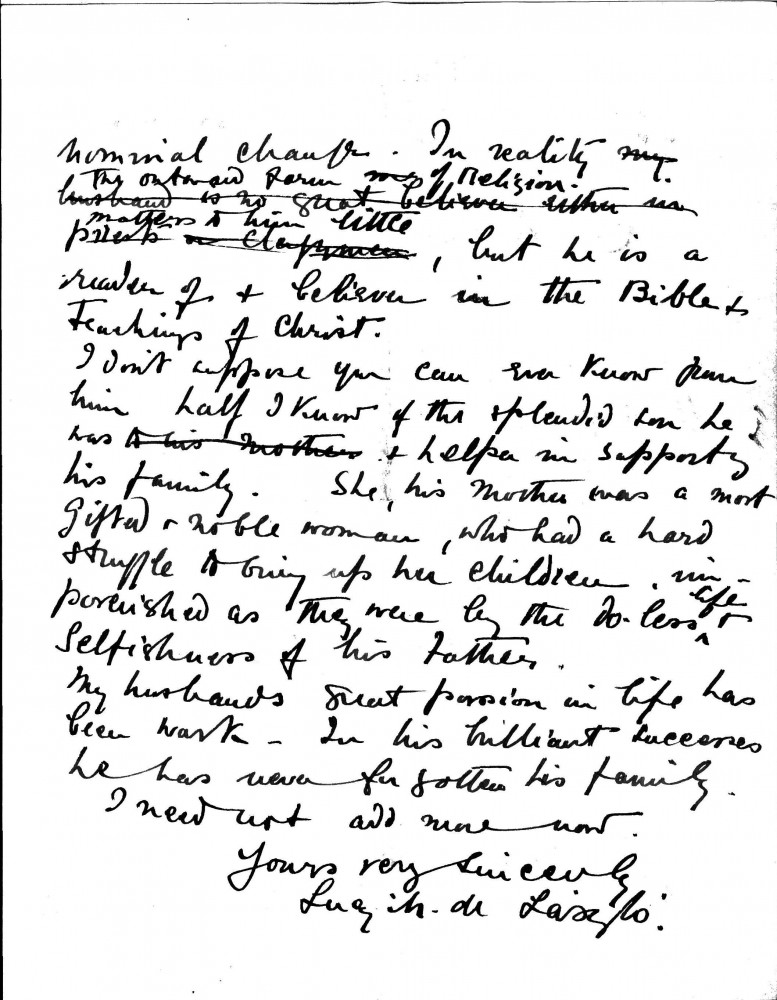 nominal change. In reality my
the outward form of Religion.
husband is no great believer either in
matters to him little
priests or Clergymen, but he is a
reader of & believer in the Bible &
Teachings of Christ.
I don't suppose you can ever know from
him half I know of the splendid son he
was to his mother & helper in supporting
his family. She, his mother was a most
gifted & noble woman, who had a hard
struggle to bring up her children, im-
life
poverished as they were by the do-less &
Selfishness of his Father.
My husbands great passion in life has
been work - In his brilliant successes
he has never forgotten his family.
I need not add more now.
Yours very sincerely
Lucy M. de László.